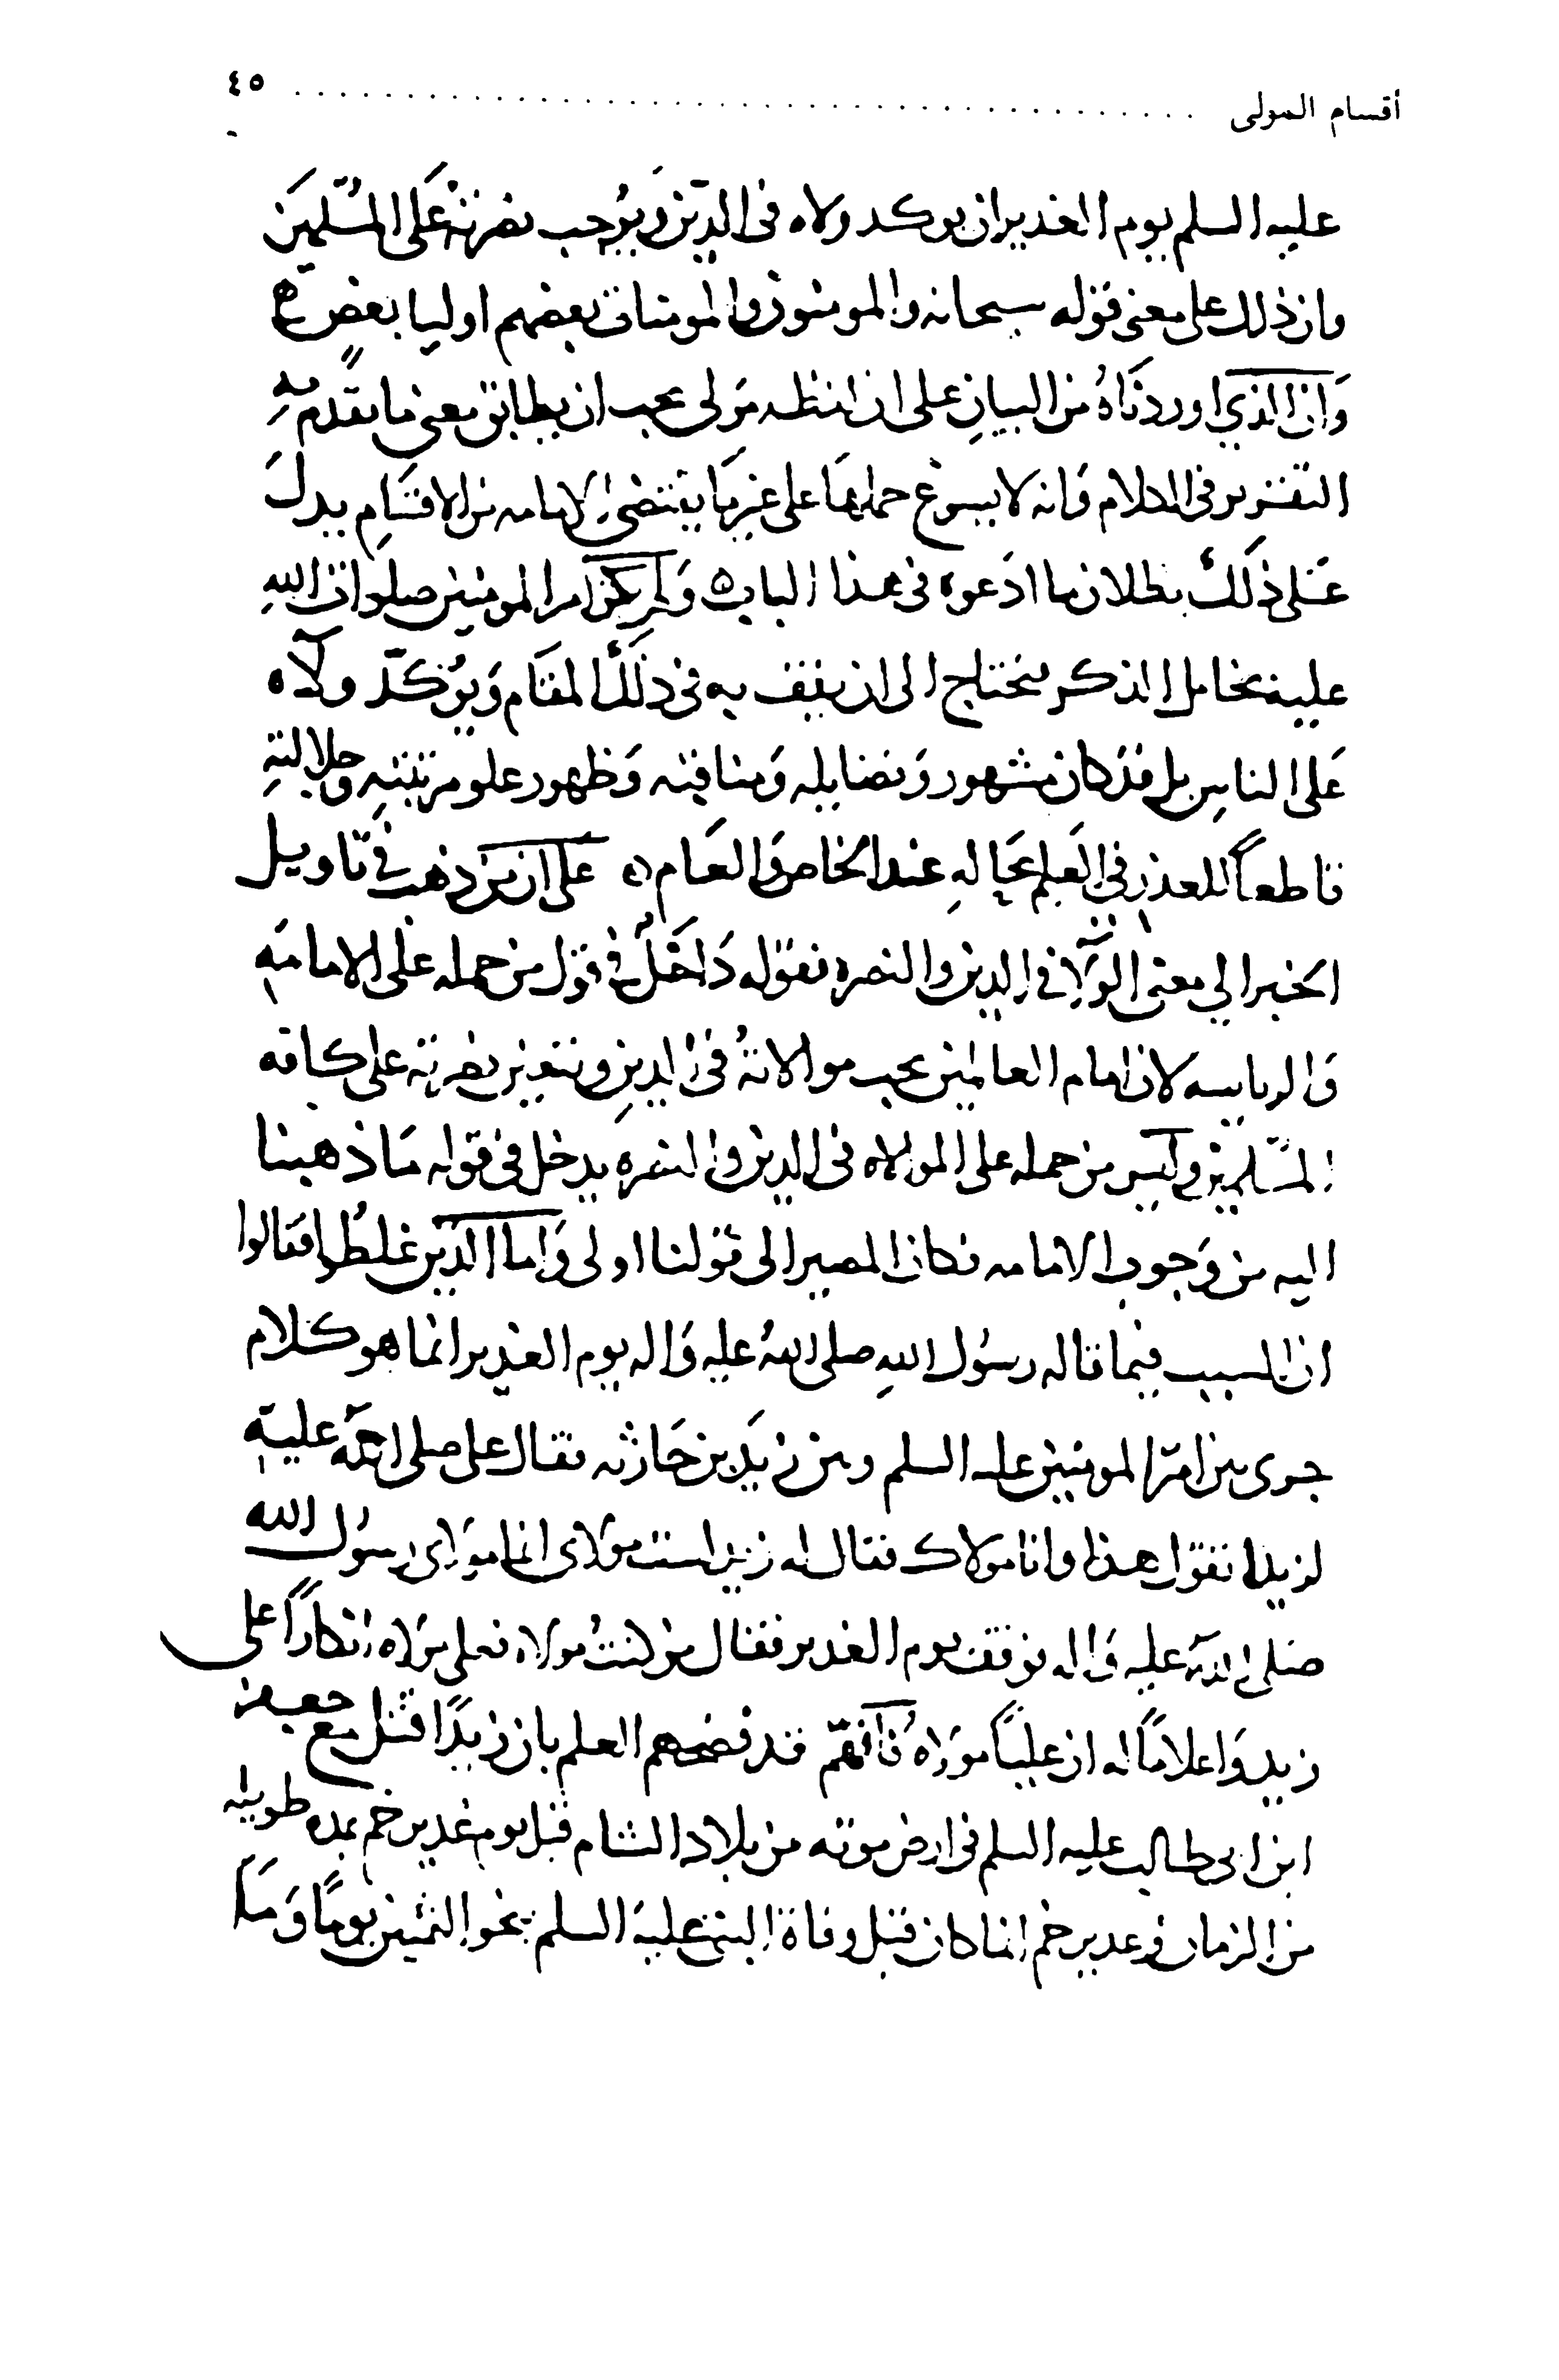 أقسام المولى ........................................ ٤٥
عليه السلم يوم الغدير ان يوكد ولاه في الدين ويوجب نصرته على المسلمين
وان ذلك على معنى قوله سبحانه والمومنون والمومنات بعضهم اوليا بعض
وان الذي اوردناه من البيان على ان لفظه مولى يجب ان يطابق معنى ما تقدم به
التقرير في الكلام وانه لا يسوغ حملها على غير ما يقتضي الامامه من الاقسام يدل
على ذلك بطلان ما ادعوه في هذا الباب ولم يكن امير المومنين صلوات الله
عليه بخامل الذكر يحتاج الى ان يقف به في ذلك المقام ويوكد ولاه
على الناس بل قد كان مشهورا وفضايله ومناقبه وظهور علو مرتبته وجلالته
قاطعا للعذر في العلم بحاله عند الخاص والعام على ان من ذهب في تاويل
الخبر الي معنى الولا في الدين والنصره فقوله داخل في قول من حمله على الامامه
والرياسه لان امام العالمين يجب موالاته في الدين وتتعين نصرته على كافه
المسلمين وليس من حمله على الموالاه في الدين والنصره يدخل في قوله ما ذهبنا
اليه من وجوب الامامه فكان المصير الى قولنا اولى واما الذين غلطوا فقالوا
ان السبب فيما قاله رسول الله صلى الله عليه واله يوم الغدير انما هو كلام
جرى بين امير المومنين عليه السلم وبين زيد بن حارثه فقال على صلى الله عليه
لزيد تقول هذا وانا مولاك فقال له زيد لست مولاى انما مولاى رسول الله
صلى الله عليه واله فوقف يوم الغدير فقال من كنت مولاه فعلي مولاه انكارا على
زيد واعلاما له ان عليا مولاه فانهم قد فضحهم العلم بان زيدا قتل مع جعفر
ابن ابي طالب عليه السلم في ارض موته من بلاد الشام قبل يوم غدير خم بمده طويله
من الزمان وغدير خم انما كان قبل وفاة النبي عليه السلم بنحو الثمنين يوما وما